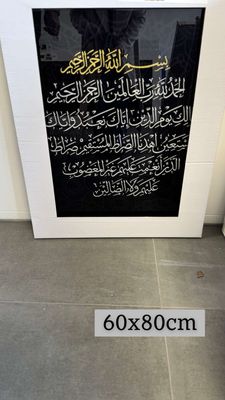 بسم الله الرحمن الرحيم
الحمد لله رب العالمين الرحمن الرحيم
ملك يوم الدين إياك نعبد وإياك
نستعين اهدنا الصراط المستقيم صراط
الذين أنعمت عليهم غير المغضوب
عليهم ولا الضالين
60x80cm